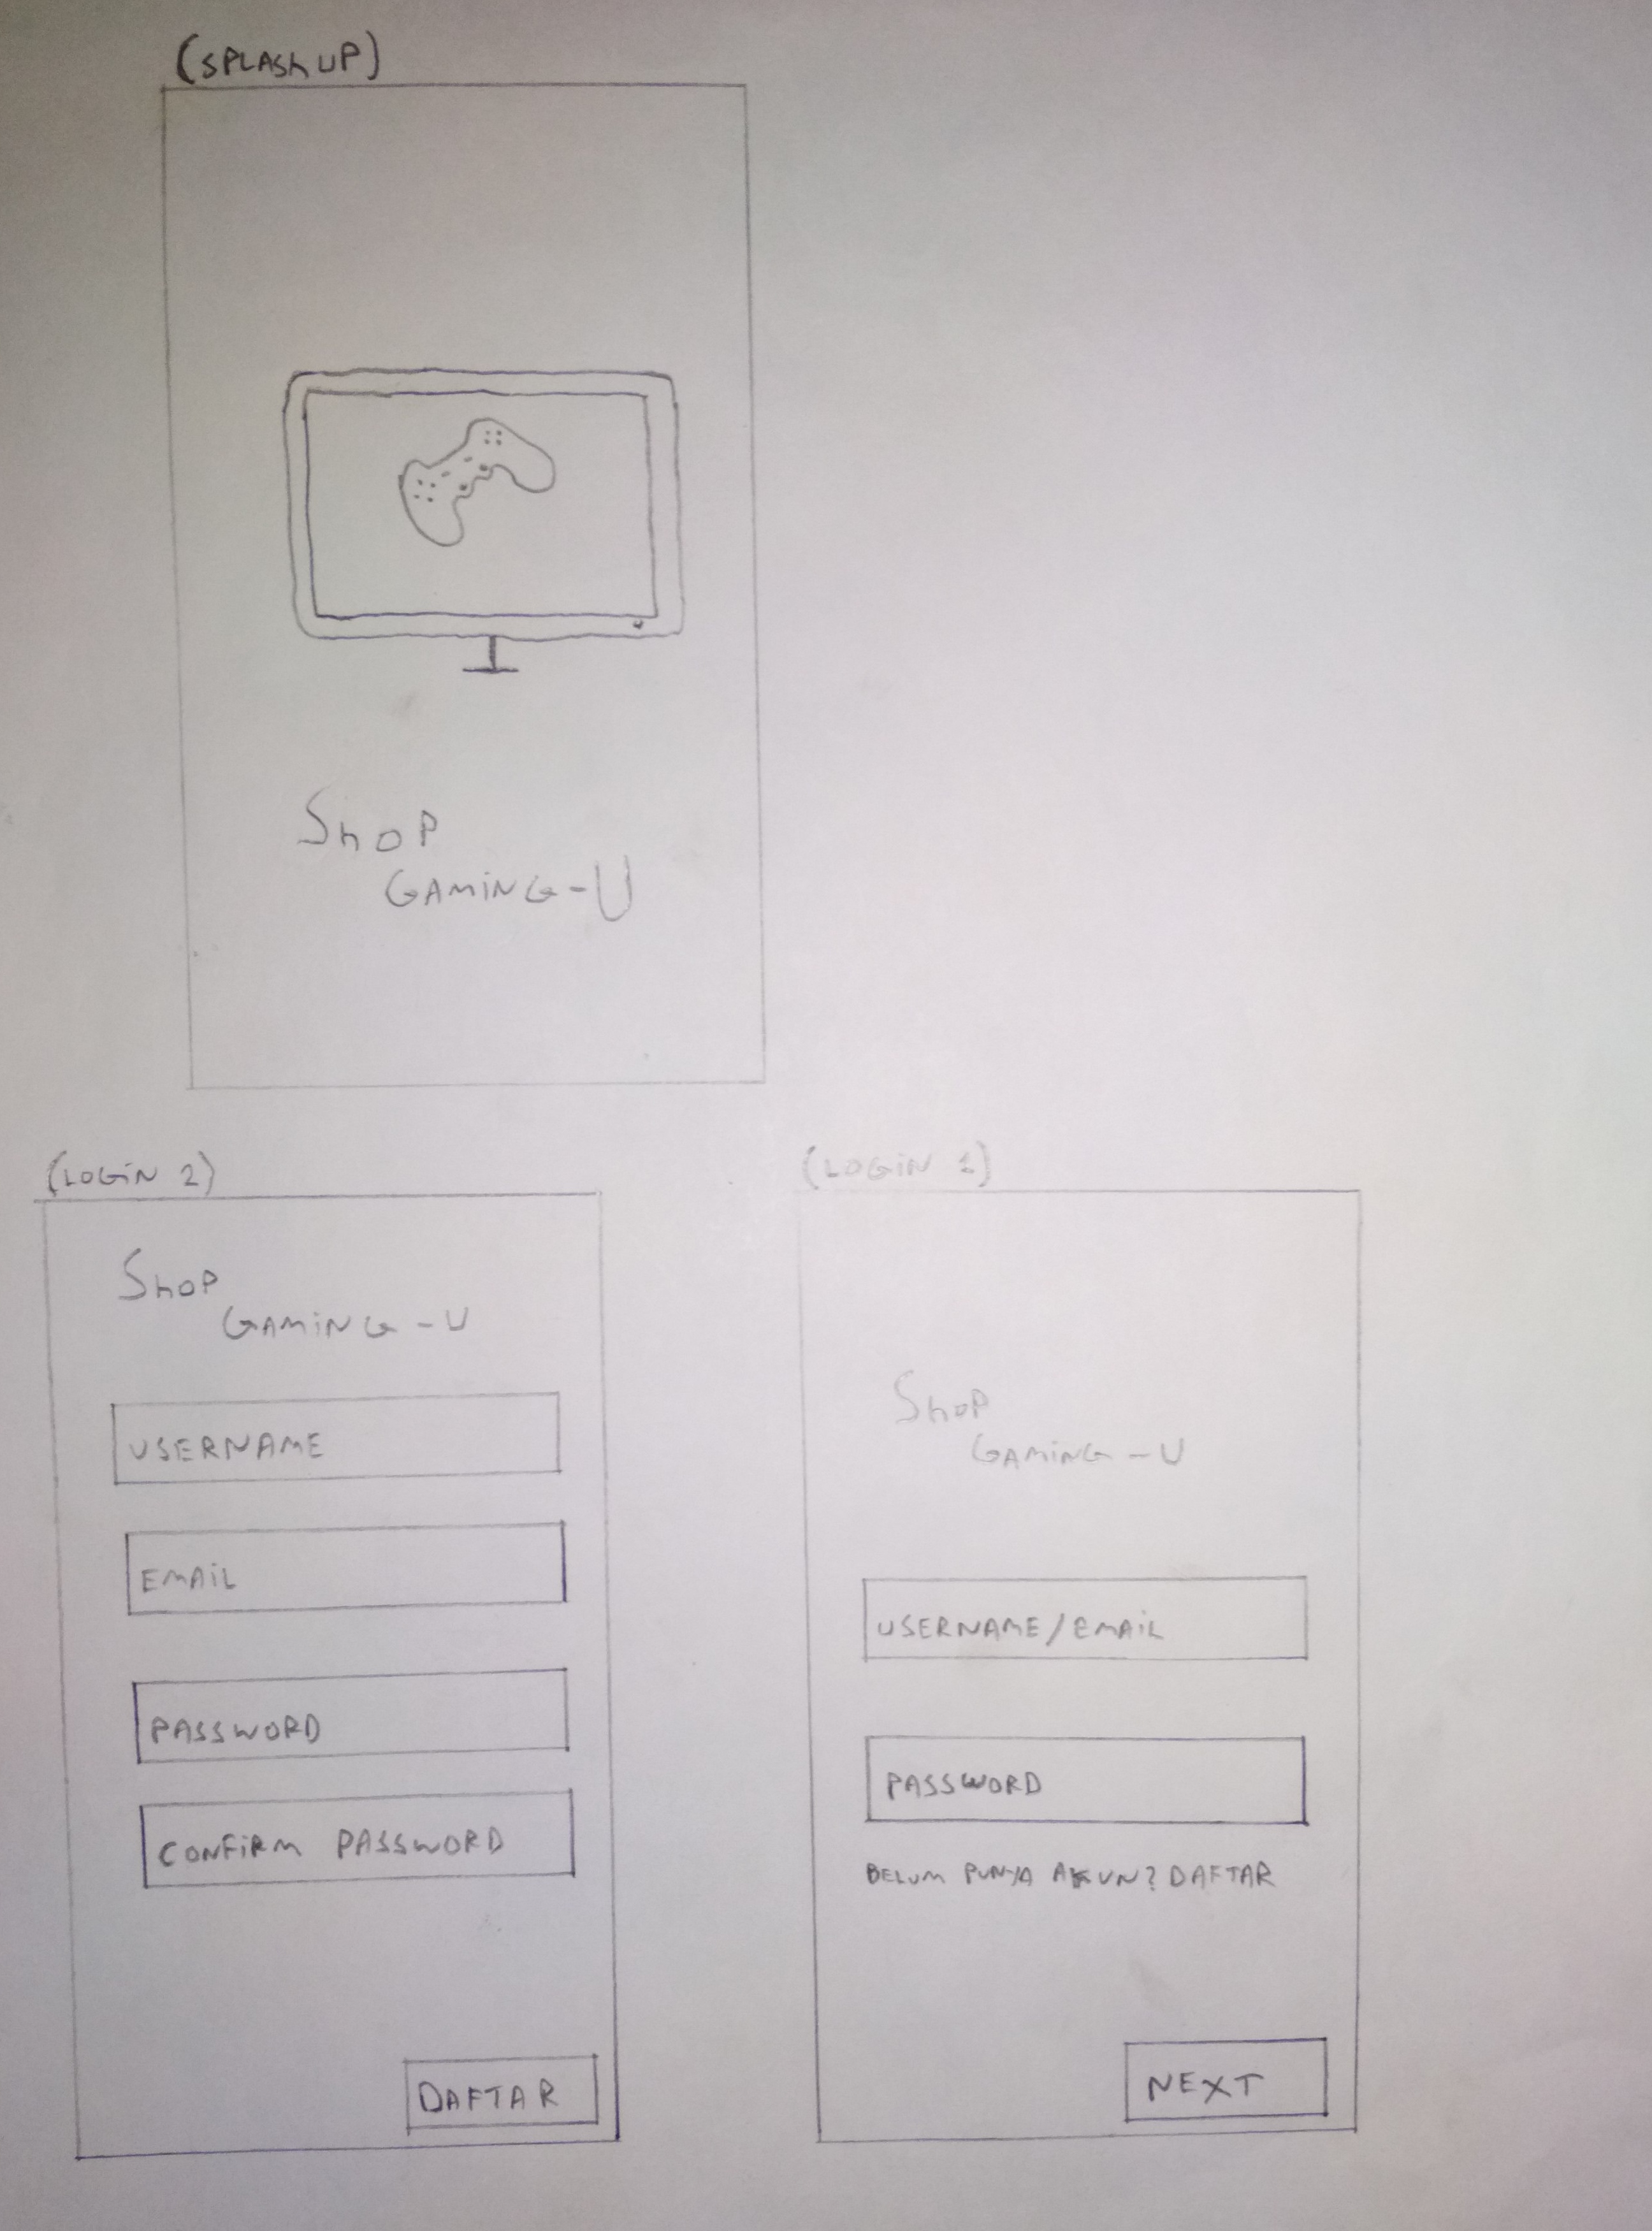 (SPLASH UP)
SHOP
GAMING-U
(LOGIN 2)
SHOP
GAMING-U
USERNAME
EMAIL
PASSWORD
CONFIRM PASSWORD
DAFTAR
(LOGIN 1)
SHOP
GAMING-U
USERNAME/EMAIL
PASSWORD
BELUM PUNYA AKUN? DAFTAR
NEXT